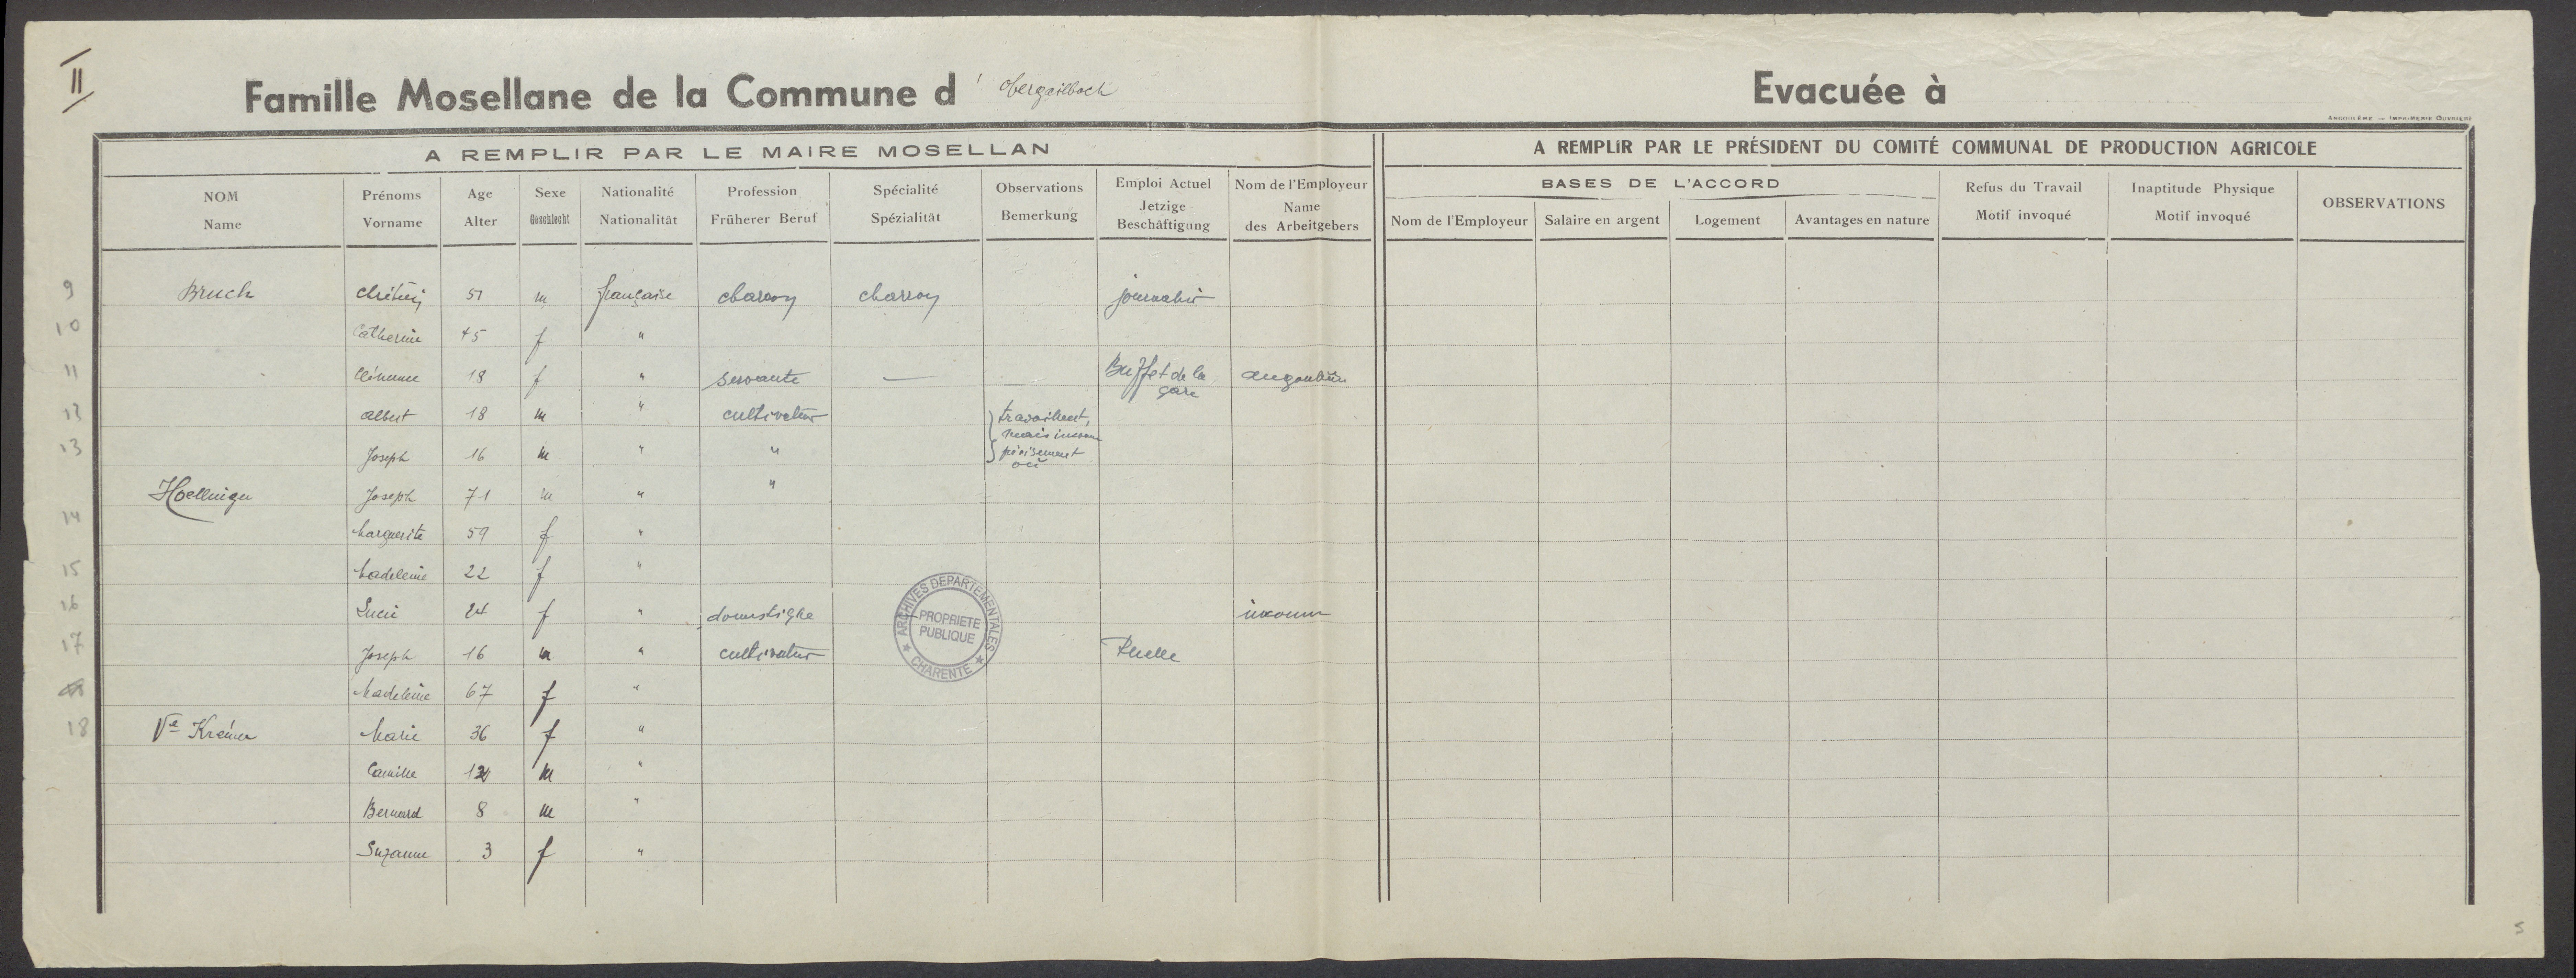 II
Famille Mosellane de la Commune d' Obergailbach
Evacuée à
ANGOULÊME — IMPRIMERIE OUVRIÈRE
A REMPLIR PAR LE MAIRE MOSELLAN
A REMPLIR PAR LE PRÉSIDENT DU COMITÉ COMMUNAL DE PRODUCTION AGRICOLE
NOM Name
Prénoms Vorname
Age Alter
Sexe Geschlecht
Nationalité Nationalität
Profession Früherer Beruf
Spécialité Spézialität
Observations Bemerkung
Emploi Actuel Jetzige Beschäftigung
Nom de l'Employeur Name des Arbeitgebers
BASES DE L'ACCORD
Nom de l'Employeur
Salaire en argent
Logement
Avantages en nature
Refus du Travail Motif invoqué
Inaptitude Physique Motif invoqué
OBSERVATIONS
9 Bruch Chrétien 51 m française charron charron journalier
10 Catherine 45 f "
11 Clémence 18 f " servante — Buffet de la gare Angoulême
13 Albert 18 m " cultivateur travaillent,
mais inconnu
13 Joseph 16 m " " précisement
où
Hoellinger Joseph 71 m " "
14 Marguerite 59 f "
15 Madeleine 22 f "
16 Lucie 24 f " domestique inconnu
17 Joseph 16 m " cultivateur Ruelle
Madeleine 67 f "
18 Ve Krémer Marie 36 f "
Camille m "
Bernard 8 m "
Suzanne 3 f "
ARCHIVES DEPARTEMENTALES
PROPRIETE
PUBLIQUE
★ CHARENTE ★
5